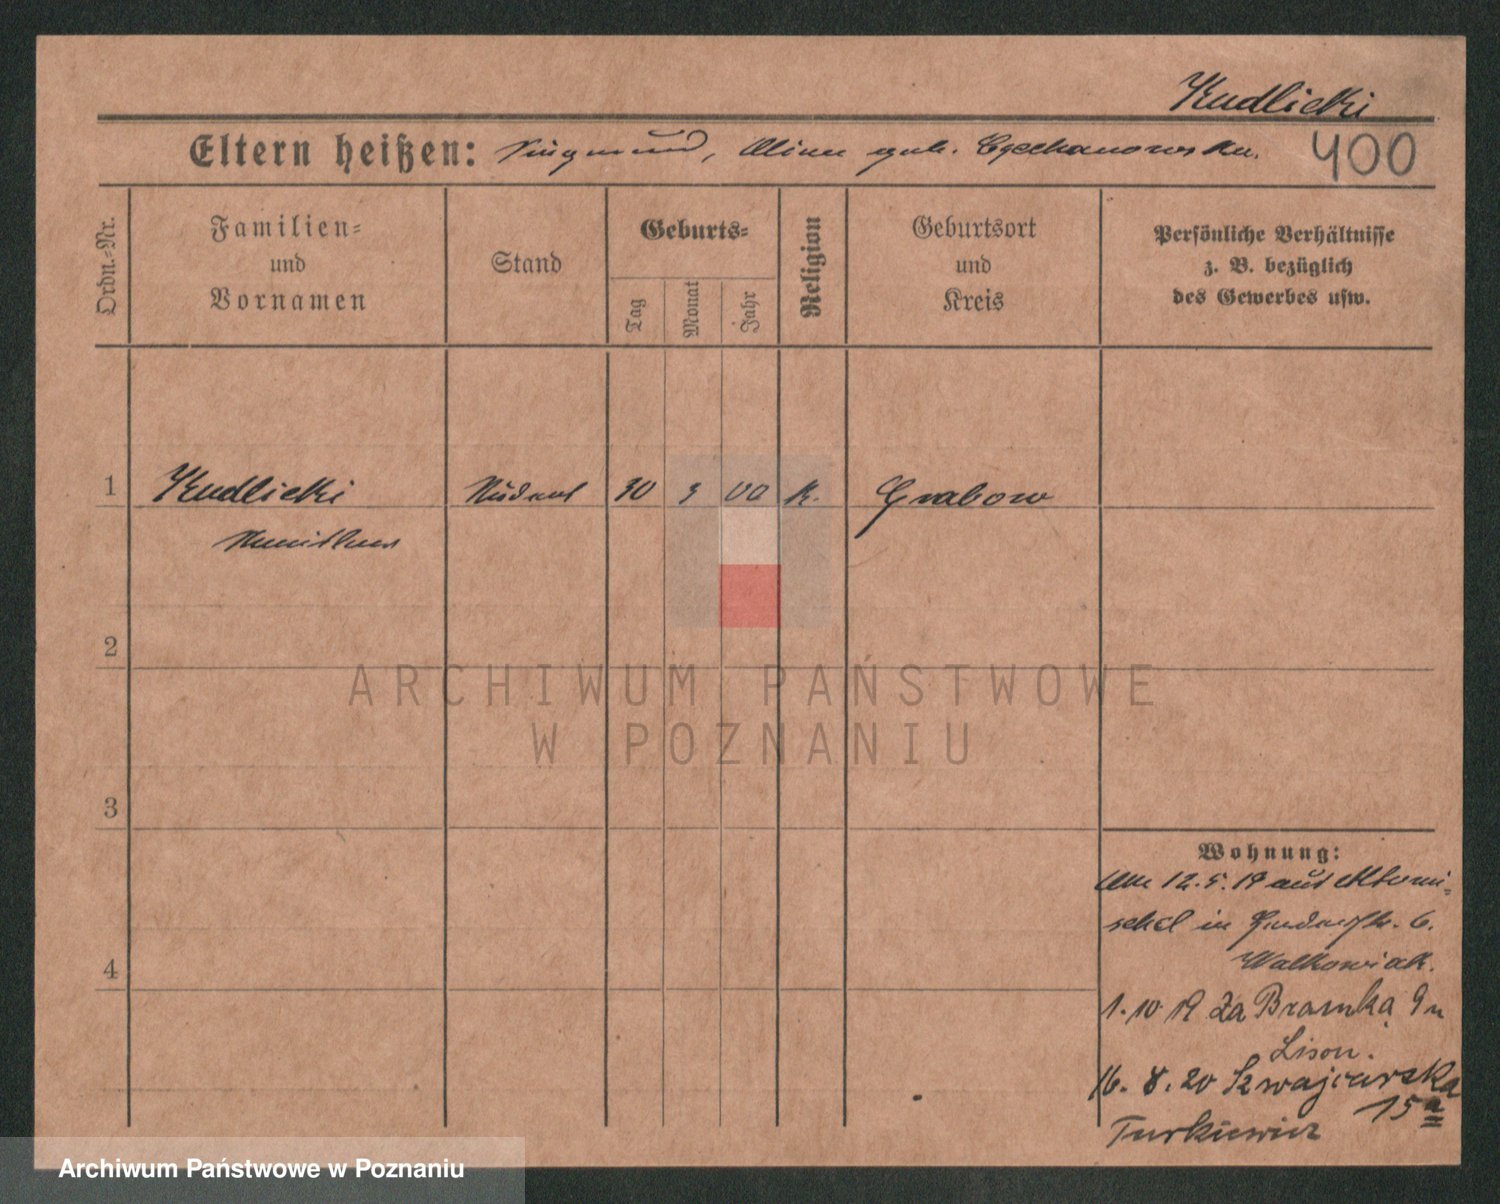 Kudlicki
Eltern heißen: Siegmund, Alina geb. Czechanowska.
400
Ordn.-Nr.
Familien-
und
Vornamen
Stand
Geburts-
Tag
Monat
Jahr
Religion
Geburtsort
und
Kreis
Persönliche Verhältnisse
z. B. bezüglich
des Gewerbes usw.
1 Kudlicki Student 30 3 00 K. Grabow
2
3
4
ARCHIWUM PAŃSTWOWE
W POZNANIU
Wohnung:
Am 12.5.19 aus Neutomi-
schel in 6.
Walkowiak.
1.10 19 Za Bramką 9
Lison.
16. 8. 20 Szwajcarska
15a
Turkiewicz
Archiwum Państwowe w Poznaniu